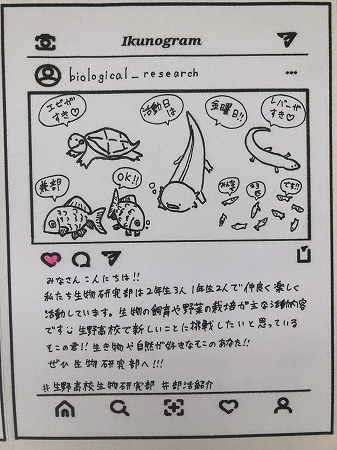 Ikunogram
biological_research
エビが
すき♡
活動日
は
金曜日!!
レバーが
すき♡
兼部
OK!!
みんな
まっ
てる
です!!
みなさん こんにちは!!
私たち生物研究部は2年生3人 1年生2人で仲良く楽しく
活動しています。生物の飼育や野菜の栽培が主な活動内容
です 生野高校で新しいことに挑戦したいと思っている
そこの君!! 生き物や自然が好きなそこのあなた!!
ぜひ生物研究部へ!!!
#生野高校生物研究部 #部活紹介